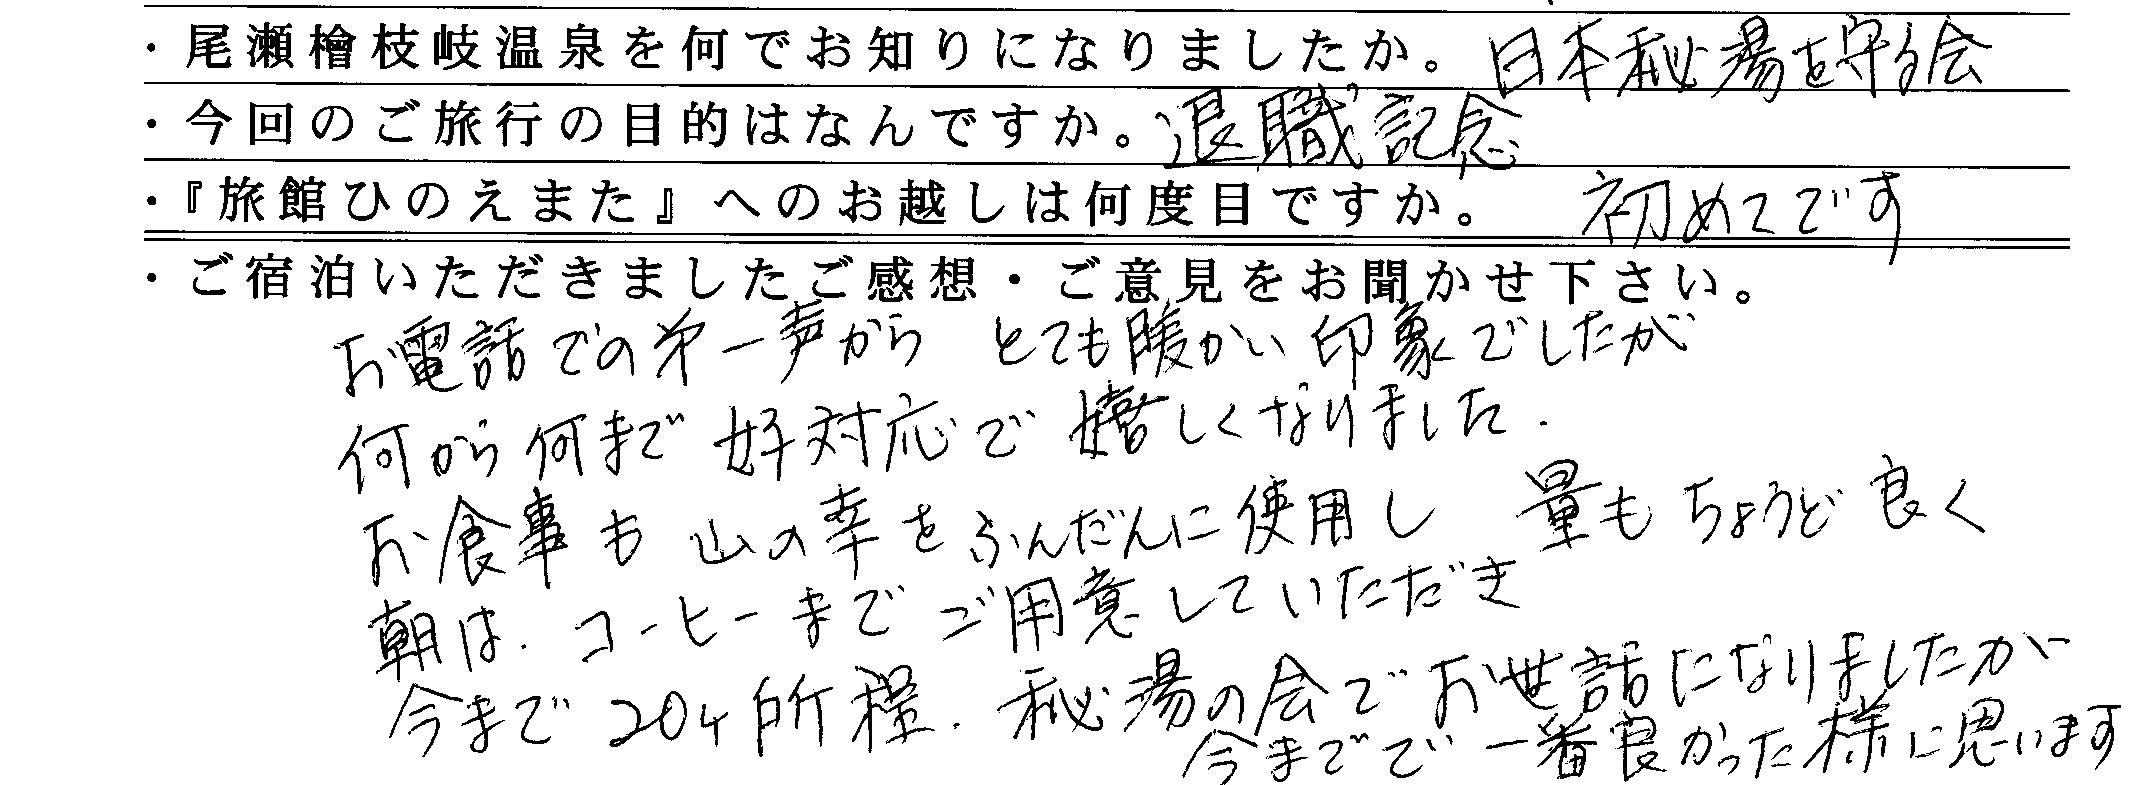 ・尾瀬檜枝岐温泉を何でお知りになりましたか。 日本秘湯を守る会
・今回のご旅行の目的はなんですか。 退職記念
・『旅館ひのえまた』へのお越しは何度目ですか。 初めてです
・ご宿泊いただきましたご感想・ご意見をお聞かせ下さい。
お電話での第一声から とても暖かい印象でしたが
何から何まで好対応で嬉しくなりました.
お食事も山の幸をふんだんに使用し 量もちょうど良く
朝は.コーヒーまでご用意していただき
今まで20ヶ所程.秘湯の会でお世話になりましたが
今までで一番良かった様に思います